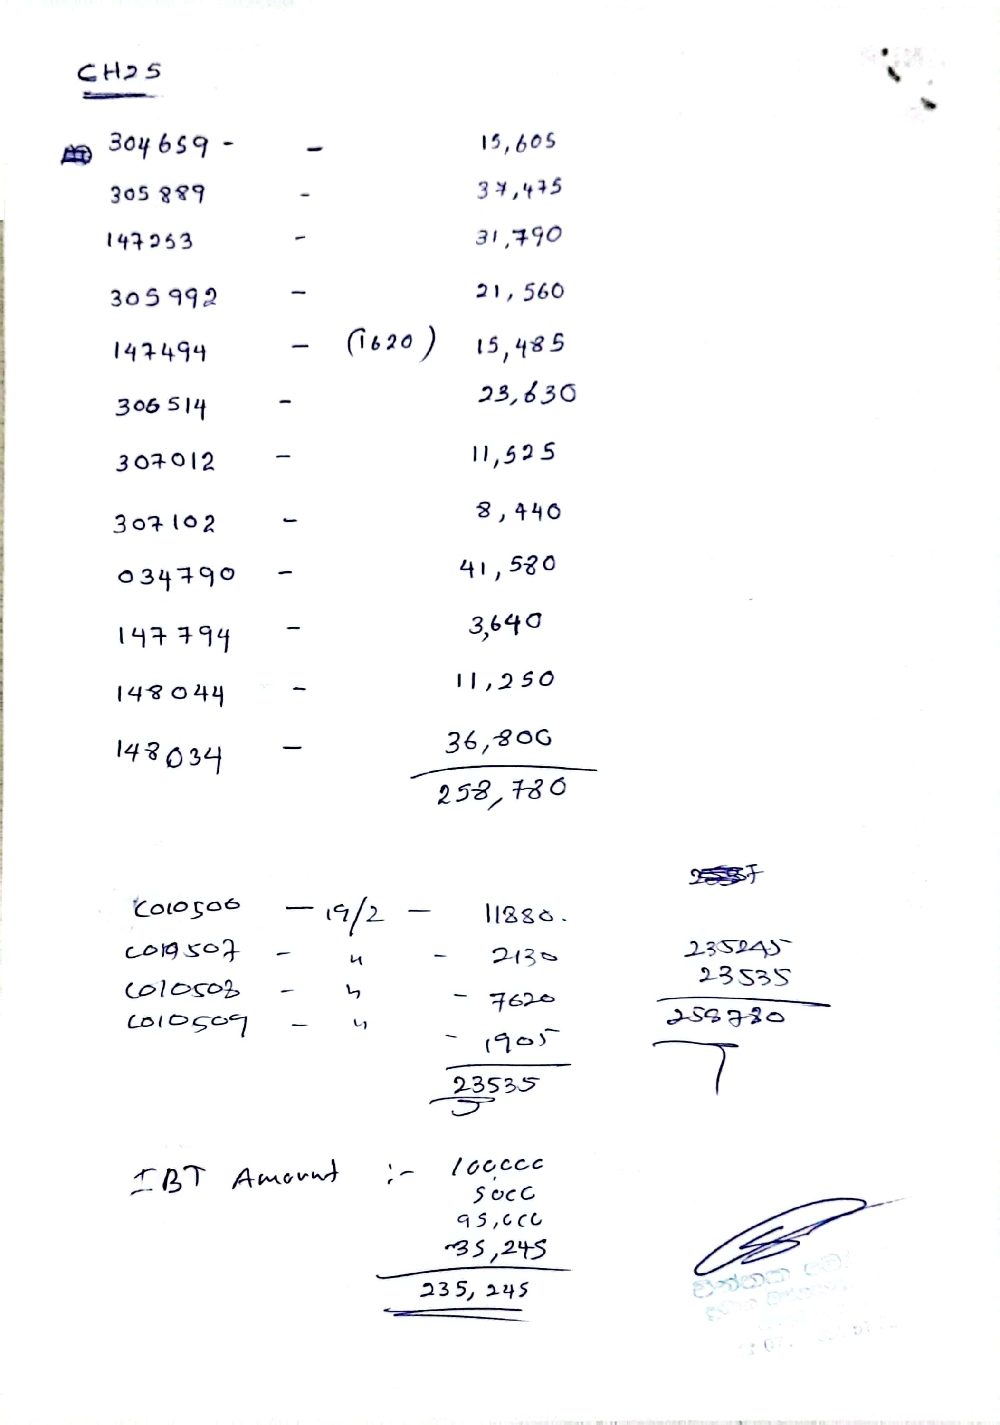 CH25
304659 - - 15,605
305889 - 37,475
147253 - 31,790
305992 - 21,560
147494 - (1620) 15,485
306514 - 23,630
307012 - 11,525
307102 - 8,440
034790 - 41,580
147794 - 3,640
148044 - 11,250
148034 - 36,800
258,780
C010506 - 19/2 - 11880.
C010507 - " - 2130
C010508 - " - 7620
C010509 - " - 1905
23535
235245
23535
258780
IBT Amount :- 100000
5000
95,000
35,245
235,245